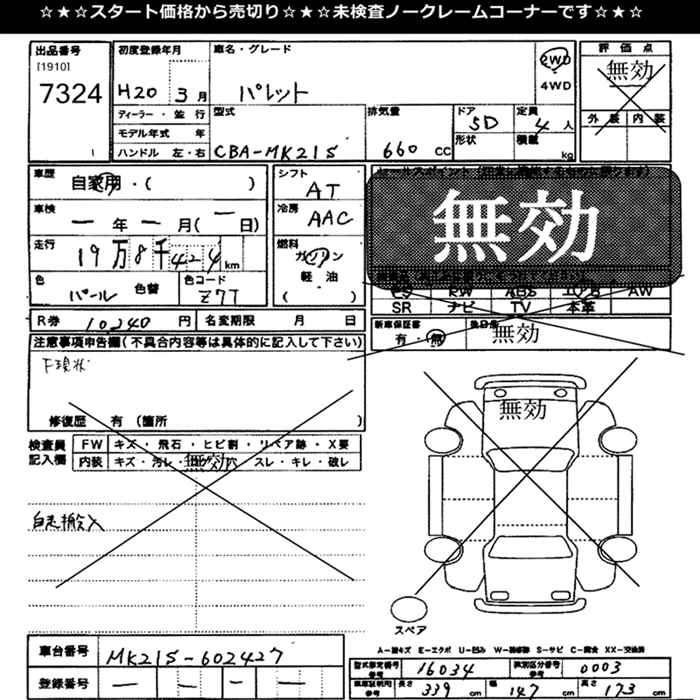 ☆★☆スタート価格から売切り☆★☆未検査ノークレームコーナーです☆★☆
出品番号
[1910]
7324
初度登録年月
H20 3月
車名・グレード
パレット
2WD
4WD
評価点
無効
外装 内装
ディーラー・並行
モデル年式 年
ハンドル 左・右
型式
CBA-MK21S
排気量
660 cc
ドア
5D
形状
定員
4人
積載
kg
車歴
自家用・( )
シフト
AT
車検
ー年ー月(ー日)
冷房
AAC
走行
19万8千424km
燃料
ガソリン
軽油
( )
色
パール
色替
色コード
Z7T
無効
SR ナビ TV 本革
AW
R券 10,240円
名変期限 月 日
新車保証書
有・無
無効
注意事項申告欄(不具合内容等は具体的に記入して下さい)
下現状
修復歴 有 (箇所 )
検査員
記入欄
FW キズ・飛石・ヒビ割・リペア跡・X要
内装 キズ・汚レ・穴・スレ・キレ・破レ
無効
自走搬入
無効
スペア
A-線キズ E-エクボ U-凹み W-補修跡 S-サビ C-腐食 XX-交換済
車台番号
MK21S-602427
登録番号
ー ー ー ー
型式指定番号
参考
16034
類別区分番号
参考
0003
参考
長さ 339 cm
幅 147 cm
高さ 173 cm